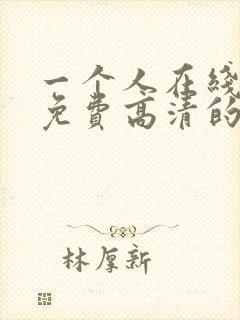 一个人在线
免费高清的
林厚新